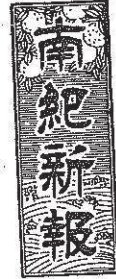 南紀新報